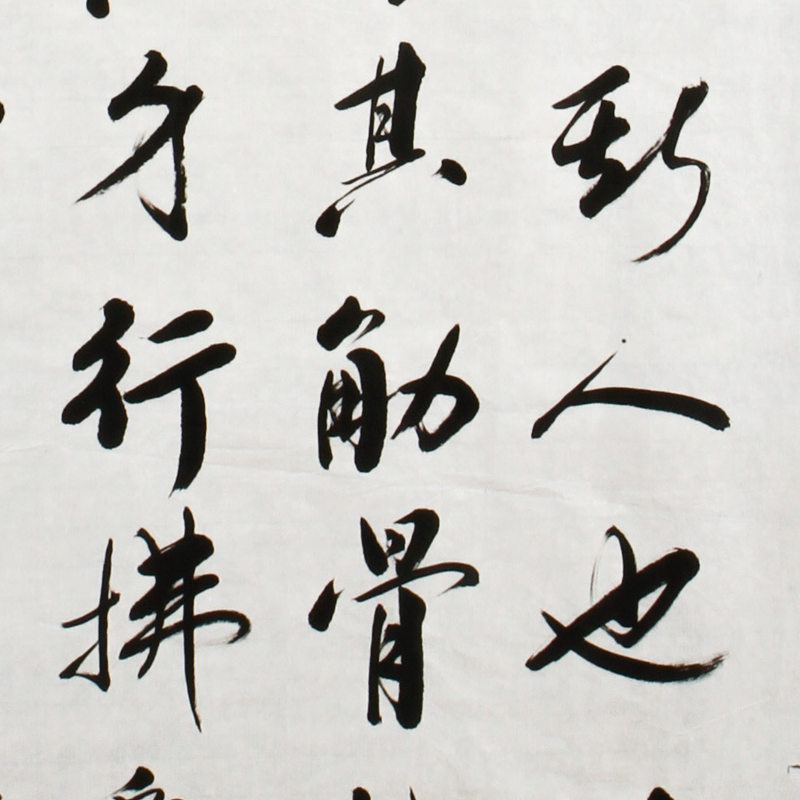 斯人也
其筋骨
身行拂